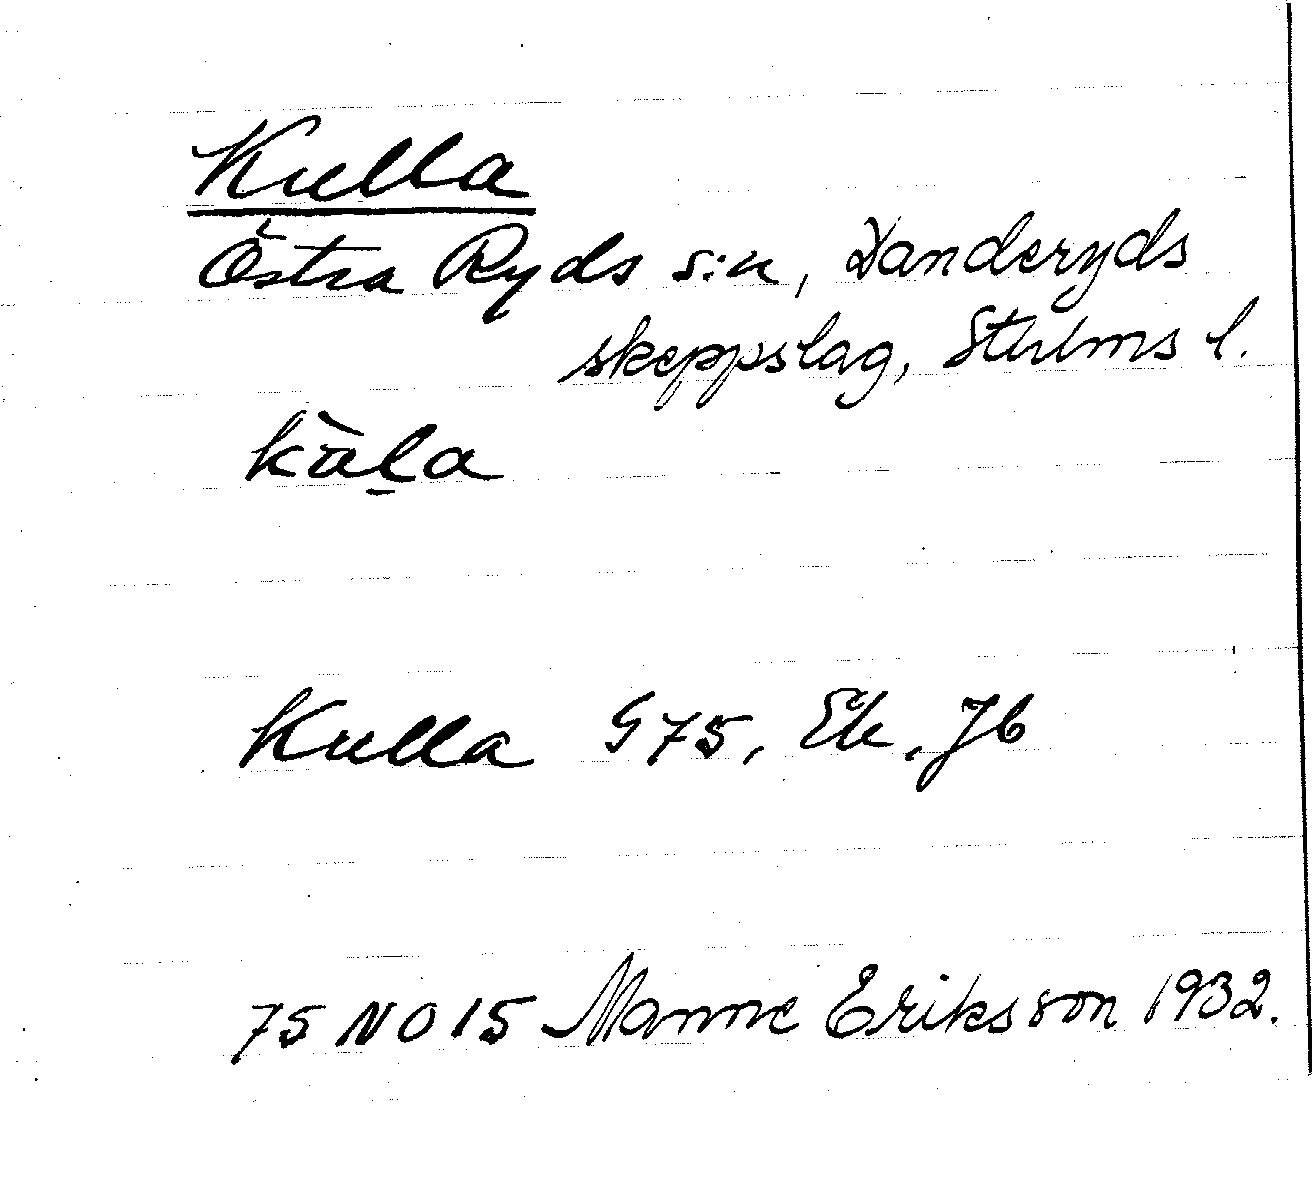 Kulla
Östra Ryds s:n, Danderyds
skeppslag, Sthlms l.
kàl̠a
Kulla G75, Ek, Jb
75 NO 15 Manne Eriksson 1932.